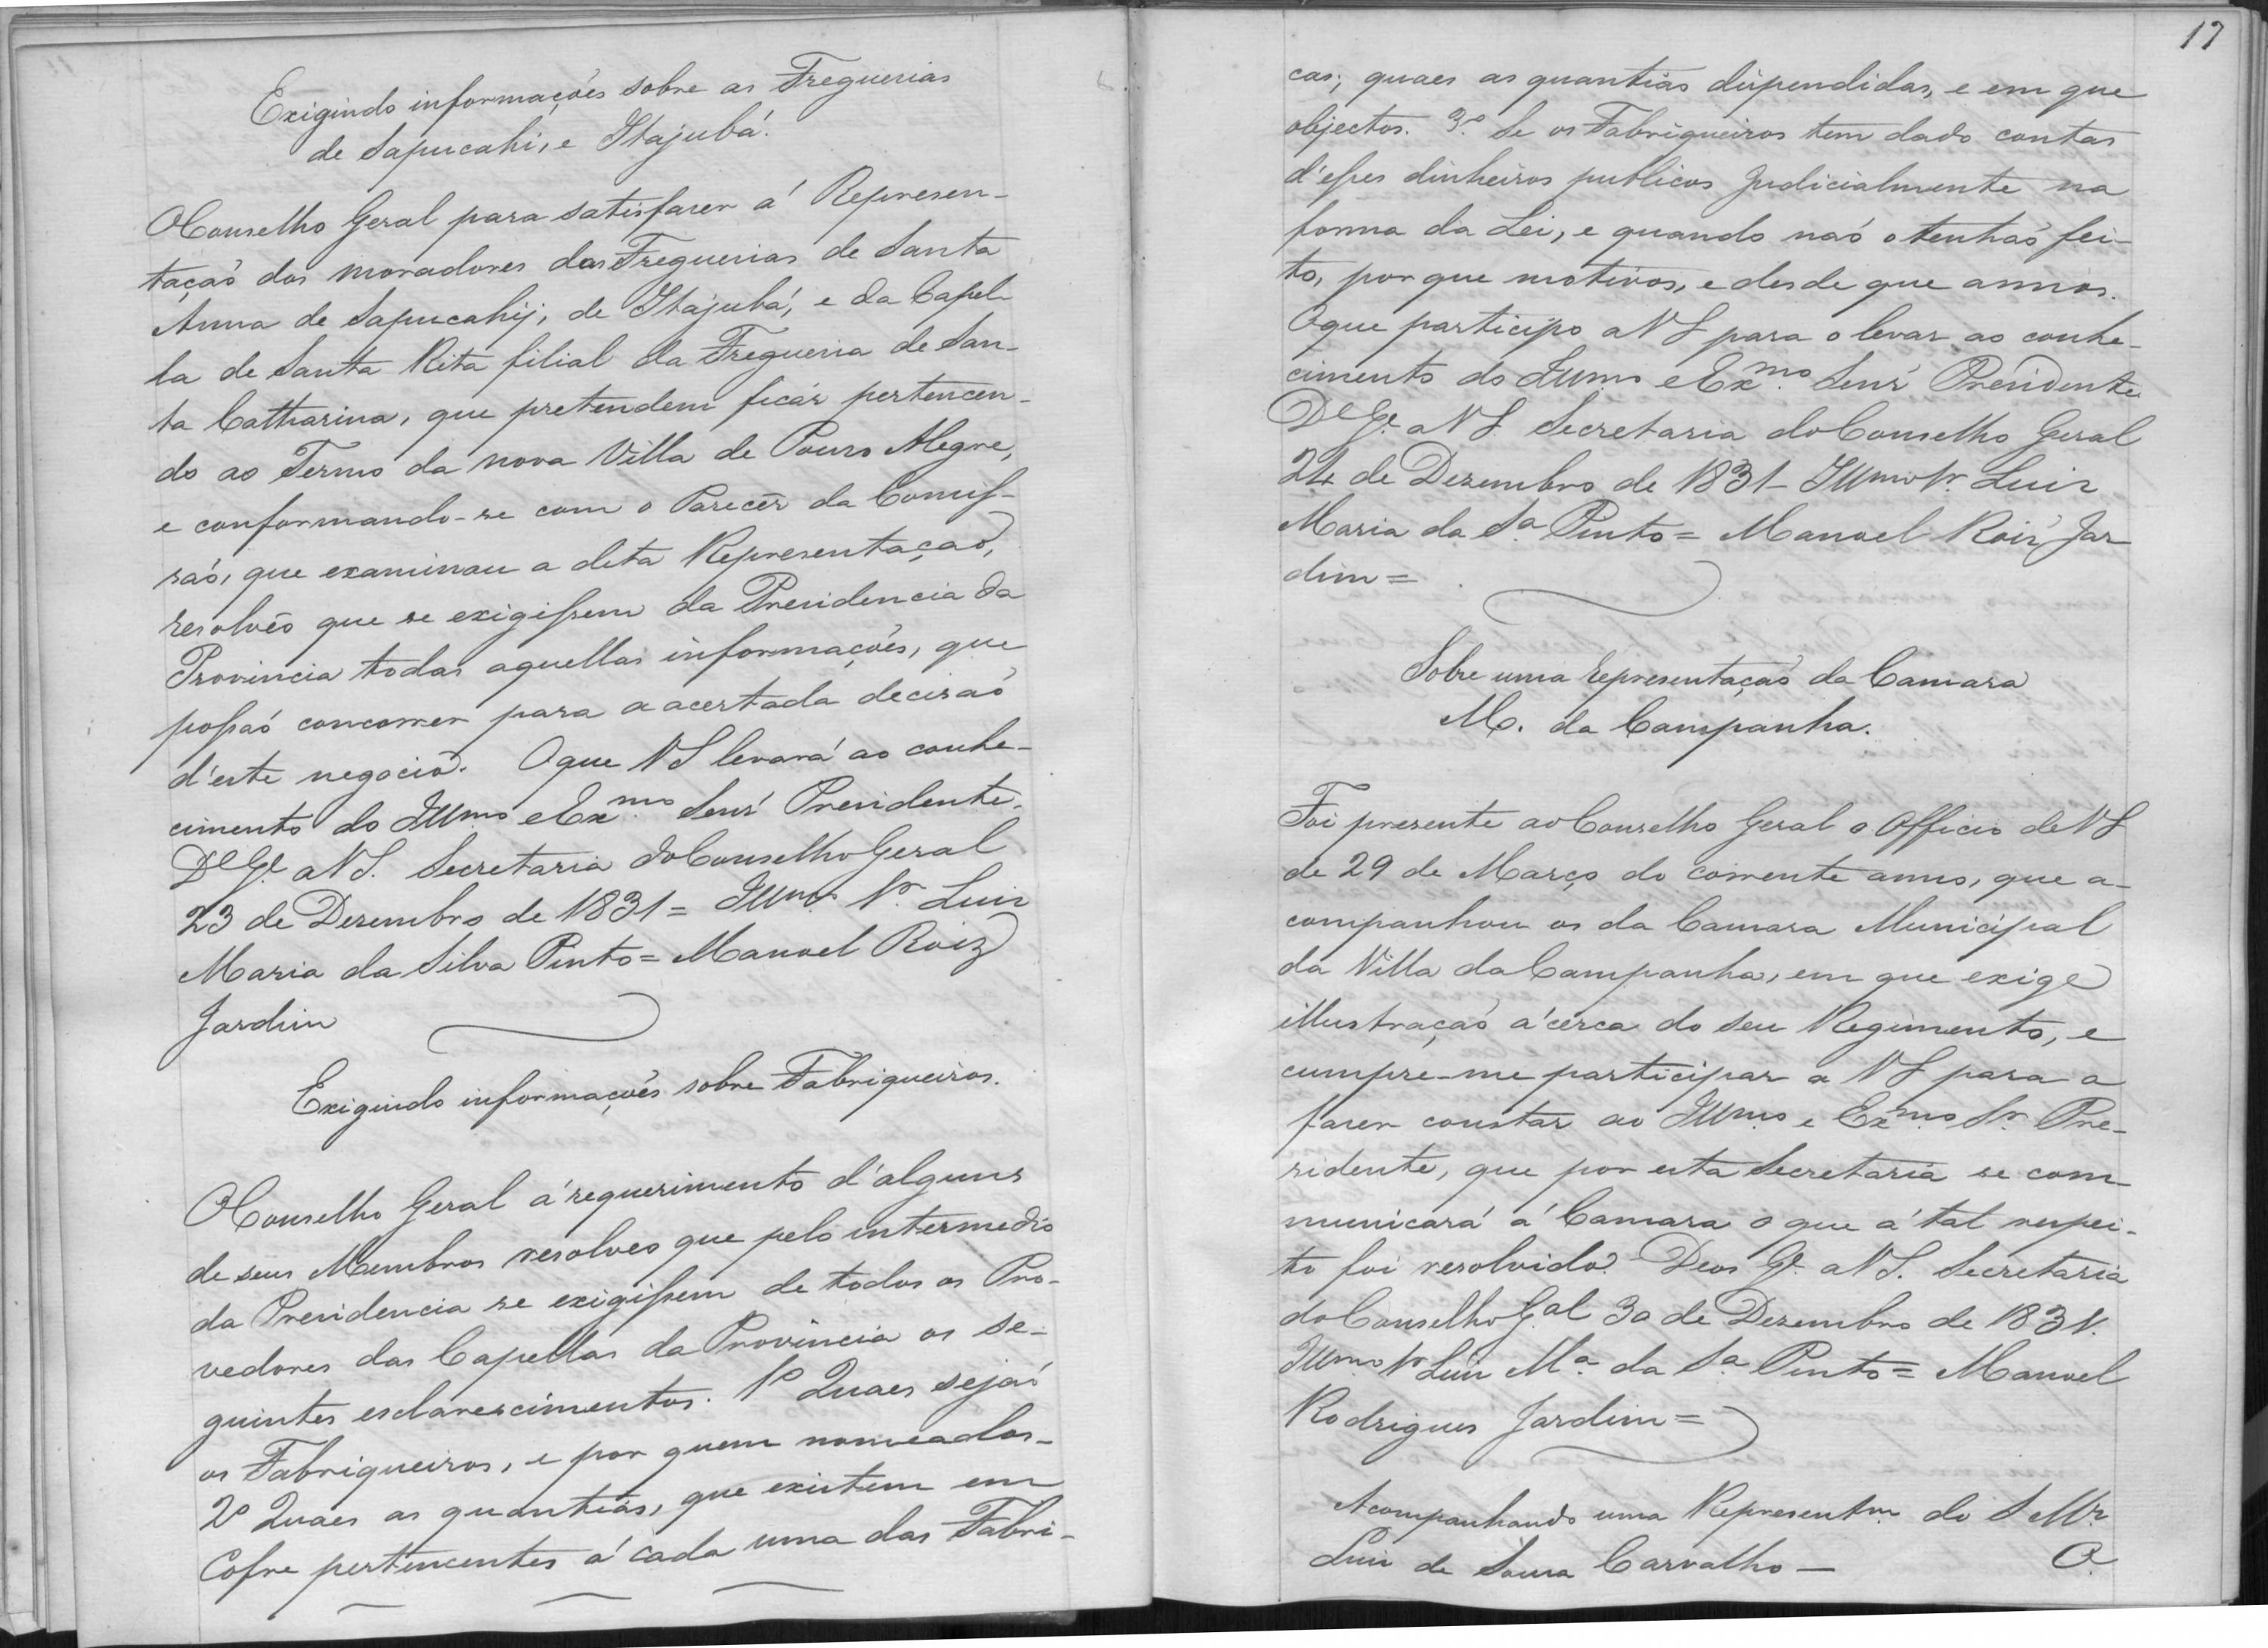 Exigindo informações sobre as Freguezias
de Sapucahi, e Itajubá.
O Conselho Geral para satisfazer á Represen-
tação dos moradores das Freguezias de Santa
Anna de Sapucahy, de Itajubá, e da Capel-
la de Santa Rita filial da Freguezia de San-
ta Catharina, que pretendem ficár pertencen-
do ao Termo da nova Villa de Pouzo Alegre,
e conformando-se com o Parecer da Comis-
são, que examinou a dita Representação,
resolvêo que se exigissem da Presidencia da
Provincia todas aquellas informações, que
possaó concorrer para a acertada decisaó
d'este negocio. O que VS levará ao conhe-
cimento do Illmo e Exmo Senr Presidente.
De Ge a VS. Secretaria do Conselho Geral
23 de Dezembro de 1831 = Illmo Sr. Luiz
Maria da Silva Pinto = Manoel Roiz
Jardim
Exigindo informações sobre Fabriqueiros.
O Conselho Geral á requerimento d'alguns
de seus Membros resolveo que pelo intermedio
da Presidencia se exigissem de todos os Pro-
vedores das Capellas da Provincia os se-
guintes esclarescimentos. 1º Quaes sejaó
os Fabriqueiros, e por quem nomeados-
2º Quaes as quantias, que existem em
Cofre pertencentes á cada uma das Fabri-
17
cas; quaes as quantias dispendidas, e em que
objectos. 3º Se os Fabriqueiros tem dado contas
d'esses dinheiros publicos Judicialmente na
forma da Lei, e quando naó o tenhaó fei-
to, por que motivos, e desde que annos.
O que participo a VS para o levar ao conhe-
cimento do Illmo e Exmo Senr Presidente
De Ge a VS Secretaria do Conselho Geral
24 de Dezembro de 1831 - Illmo Sr. Luiz
Maria da Sa Pinto = Manoel Roiz Jar
dim =
Sobre uma representaçaó da Camara
M. da Campanha.
Foi presente ao Conselho Geral o Officio de VS
de 29 de Março do corrente anno, que a-
companhou os da Camara Municipal
da Villa da Campanha, em que exige
illustraçaó ácerca do seu Regimento, e
cumpre-me participar a VS para a
fazer constar ao Illmo e Exmo Sr. Pre-
sidente, que por esta Secretaria se com
municará á Camara o que á tal respei-
to foi resolvido. Deos Ge a VS. Secretaria
do Conselho Gal 30 de Dezembro de 1831.
Illmo Sr Luiz Ma da Sa Pinto = Manoel
Rodrigues Jardim =
Acompanhando uma Representam do S Mr
Luiz de Souza Carvalho - O